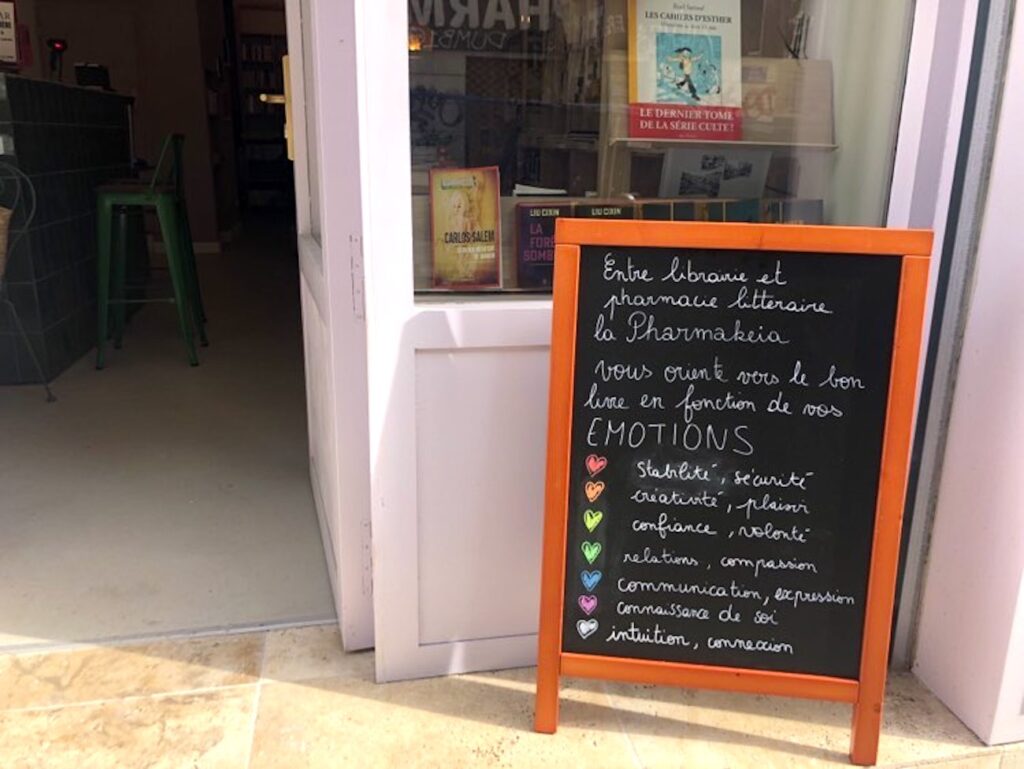 PHARM
LES CAHIERS D'ESTHER
LE DERNIER TOME
DE LA SÉRIE CULTE !
CARLOS SALEM
LIU CIXIN
LA
FORÊ
SOMB
LIU CIXIN
Entre librairie et
pharmacie littéraire
la Pharmakeia
vous oriente vers le bon
livre en fonction de vos
EMOTIONS
stabilité, sécurité
créativité, plaisir
confiance, volonté
relations, compassion
communication, expression
connaissance de soi
intuition, connexion